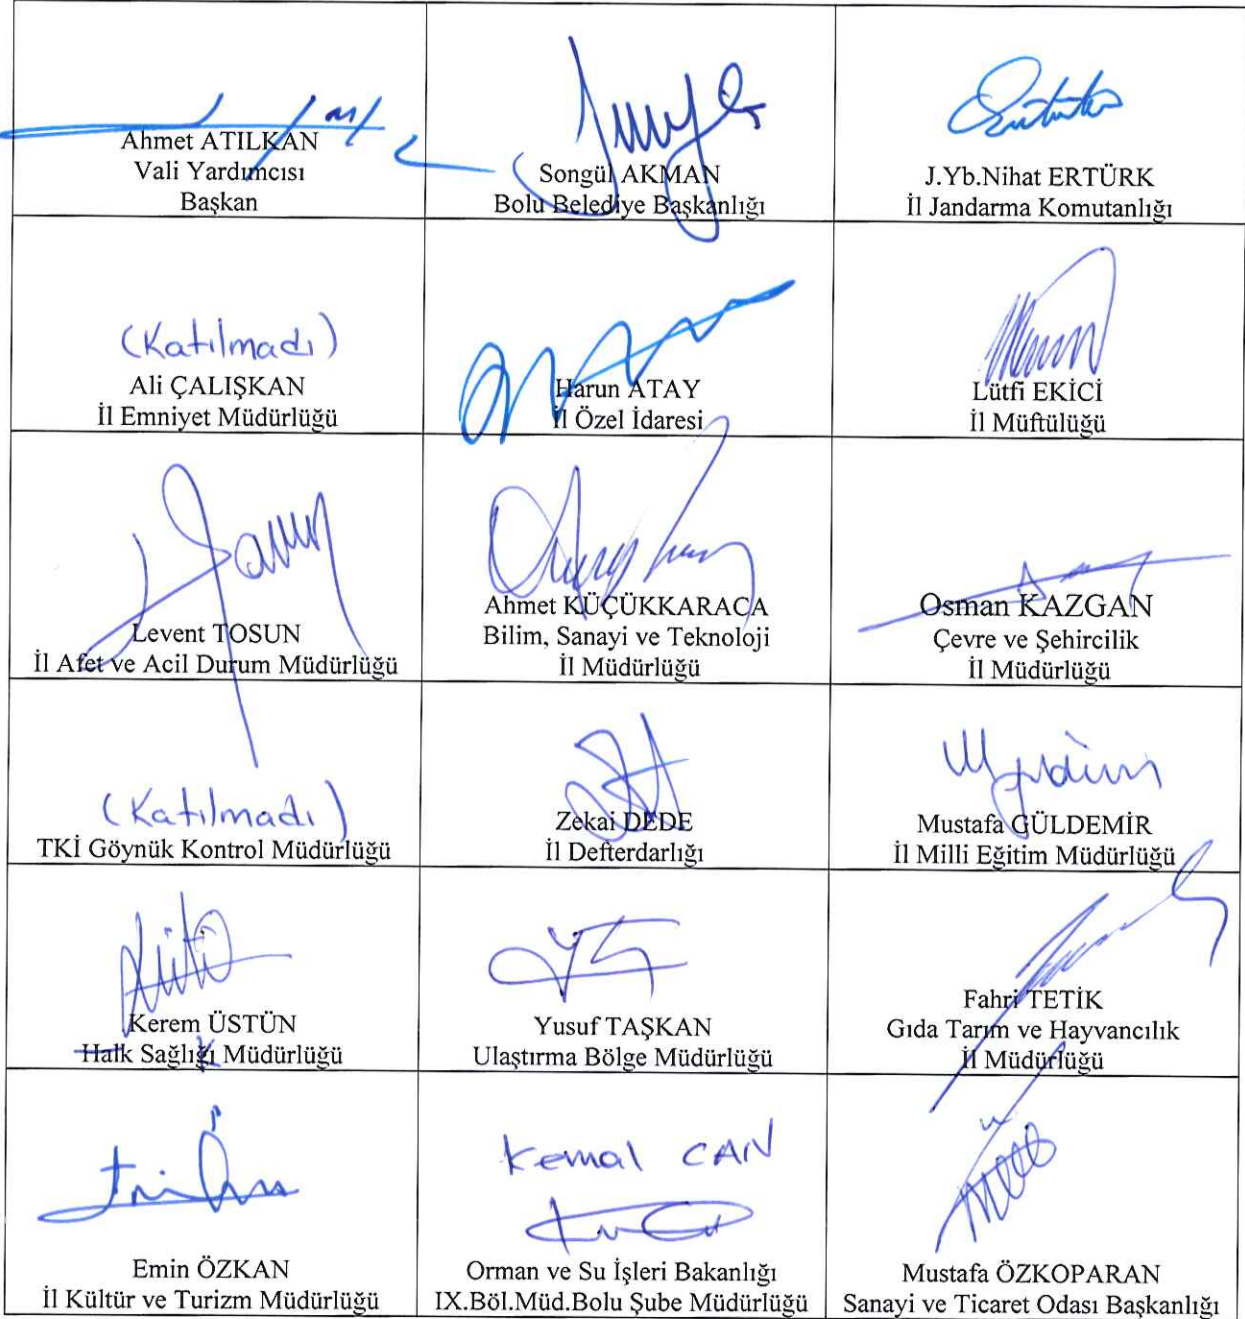 Ahmet ATILKAN
Vali Yardımcısı
Başkan
Songül AKMAN
Bolu Belediye Başkanlığı
J.Yb.Nihat ERTÜRK
İl Jandarma Komutanlığı
(Katılmadı)
Ali ÇALIŞKAN
İl Emniyet Müdürlüğü
Harun ATAY
İl Özel İdaresi
Lütfi EKİCİ
İl Müftülüğü
Levent TOSUN
İl Afet ve Acil Durum Müdürlüğü
Ahmet KÜÇÜKKARACA
Bilim, Sanayi ve Teknoloji
İl Müdürlüğü
Osman KAZGAN
Çevre ve Şehircilik
İl Müdürlüğü
(Katılmadı)
TKİ Göynük Kontrol Müdürlüğü
Zekai DEDE
İl Defterdarlığı
Mustafa GÜLDEMİR
İl Milli Eğitim Müdürlüğü
Kerem ÜSTÜN
Halk Sağlığı Müdürlüğü
Yusuf TAŞKAN
Ulaştırma Bölge Müdürlüğü
Fahri TETİK
Gıda Tarım ve Hayvancılık
İl Müdürlüğü
Emin ÖZKAN
İl Kültür ve Turizm Müdürlüğü
Kemal CAN
Orman ve Su İşleri Bakanlığı
IX.Böl.Müd.Bolu Şube Müdürlüğü
Mustafa ÖZKOPARAN
Sanayi ve Ticaret Odası Başkanlığı